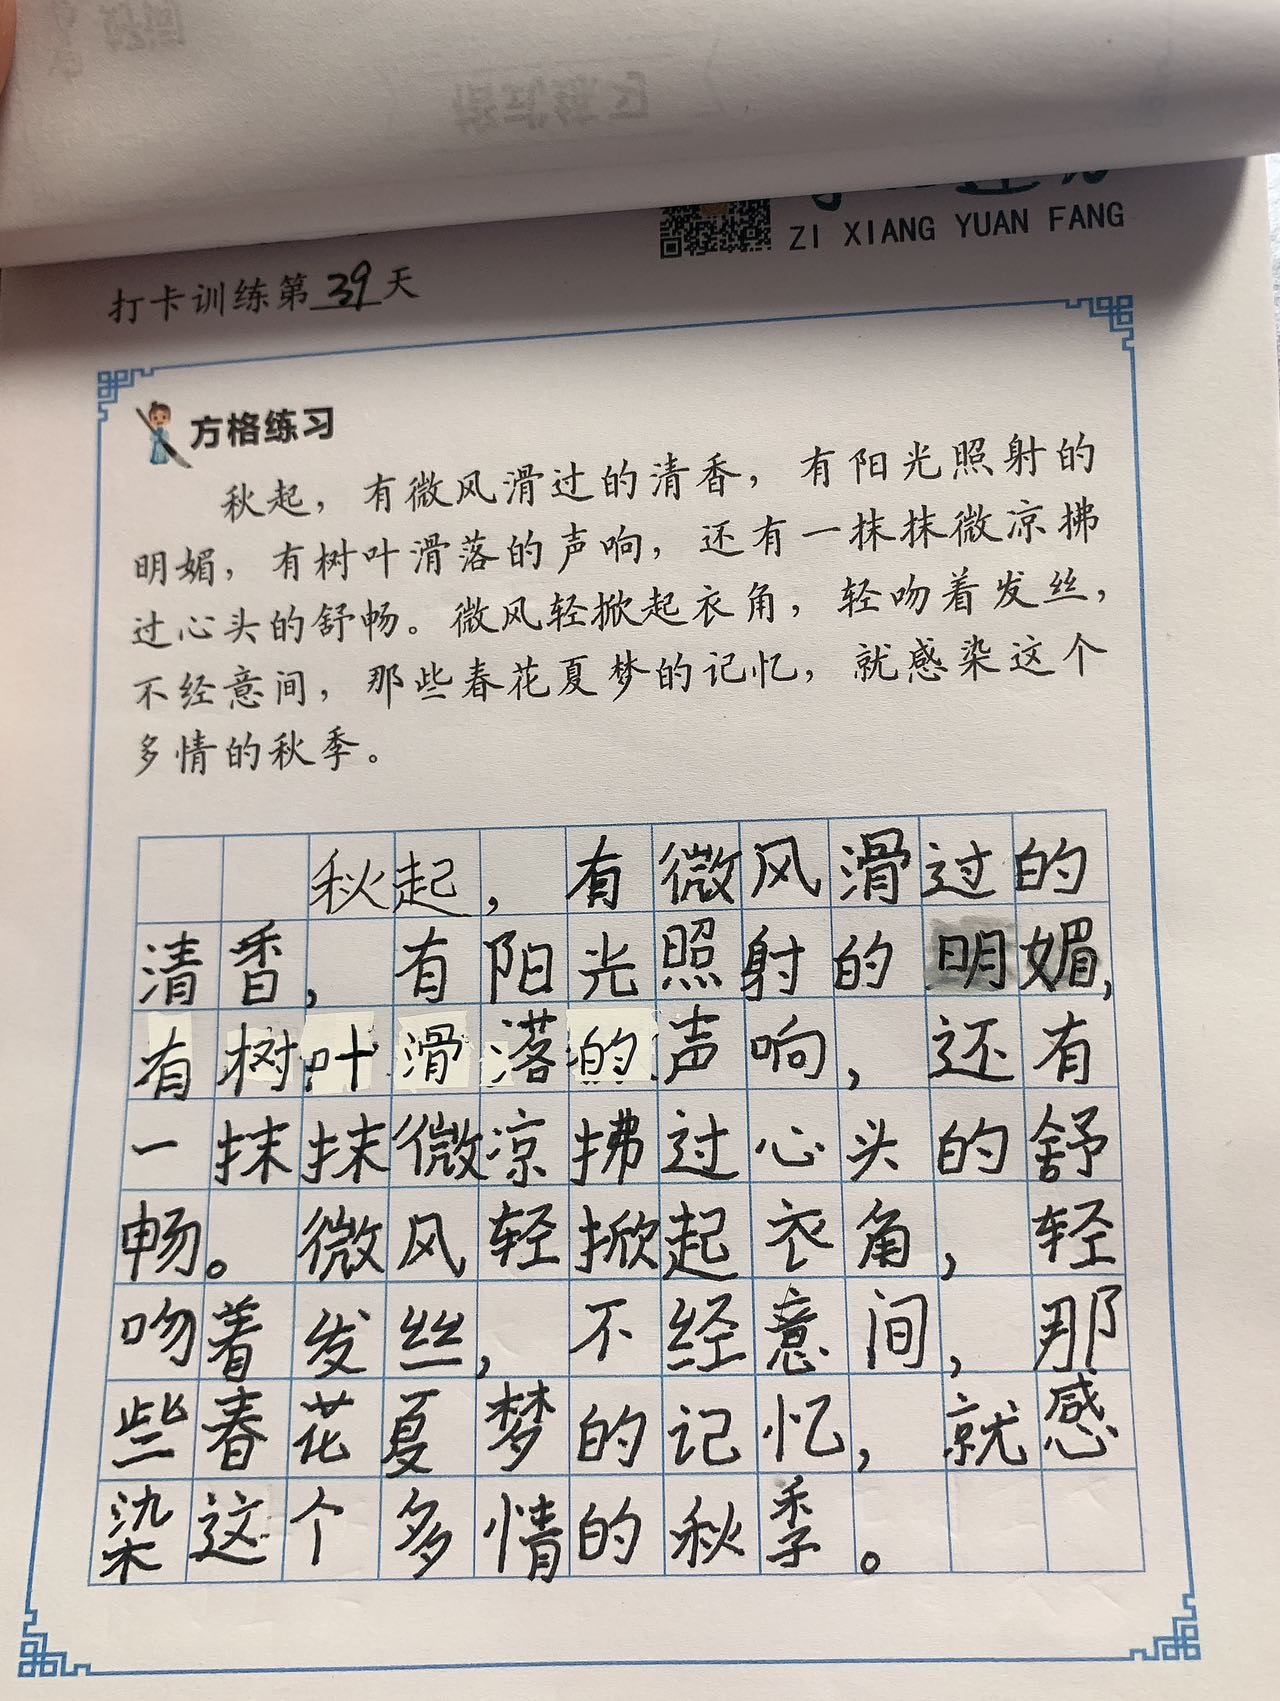 ZI XIANG YUAN FANG
打卡训练第39天
方格练习
秋起，有微风滑过的清香，有阳光照射的
明媚，有树叶滑落的声响，还有一抹抹微凉拂
过心头的舒畅。微风轻掀起衣角，轻吻着发丝，
不经意间，那些春花夏梦的记忆，就感染这个
多情的秋季。
秋起，有微风滑过的
清香，有阳光照射的明媚，
有树叶滑落的声响，还有
一抹抹微凉拂过心头的舒
畅。微风轻掀起衣角，轻
吻着发丝，不经意间，那
些春花夏梦的记忆，就感
染这个多情的秋季。